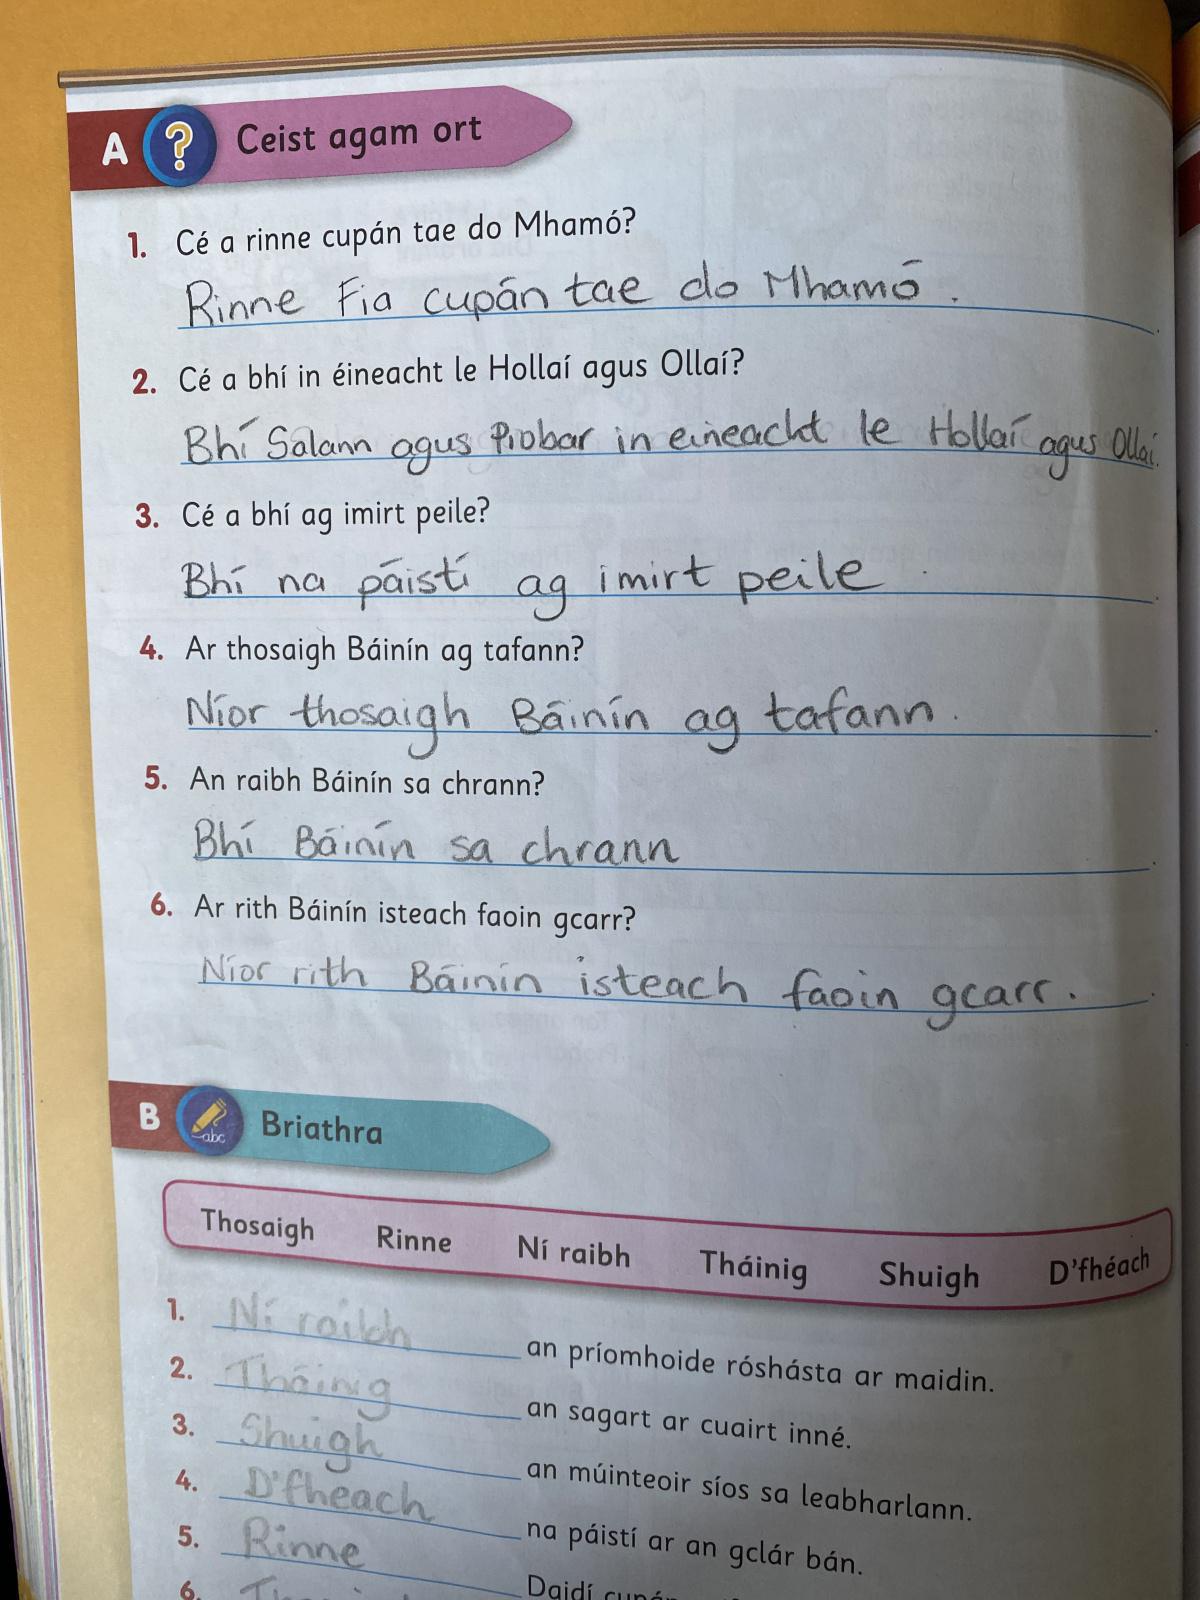 A ? Ceist agam ort
1. Cé a rinne cupán tae do Mhamó?
Rinne Fia cupán tae do Mhamó.
2. Cé a bhí in éineacht le Hollaí agus Ollaí?
Bhí Salann agus Piobar in eineacht le Hollaí agus Ollaí.
3. Cé a bhí ag imirt peile?
Bhí na páistí ag imirt peile.
4. Ar thosaigh Báinín ag tafann?
Níor thosaigh Báinín ag tafann.
5. An raibh Báinín sa chrann?
Bhí Báinín sa chrann.
6. Ar rith Báinín isteach faoin gcarr?
Níor rith Báinín isteach faoin gcarr.
B abc Briathra
Thosaigh Rinne Ní raibh Tháinig Shuigh D'fhéach
1. Ní raibh an príomhoide róshásta ar maidin.
2. Tháinig an sagart ar cuairt inné.
3. Shuigh an múinteoir síos sa leabharlann.
4. D'fheach na páistí ar an gclár bán.
5. Rinne Daidí
6.